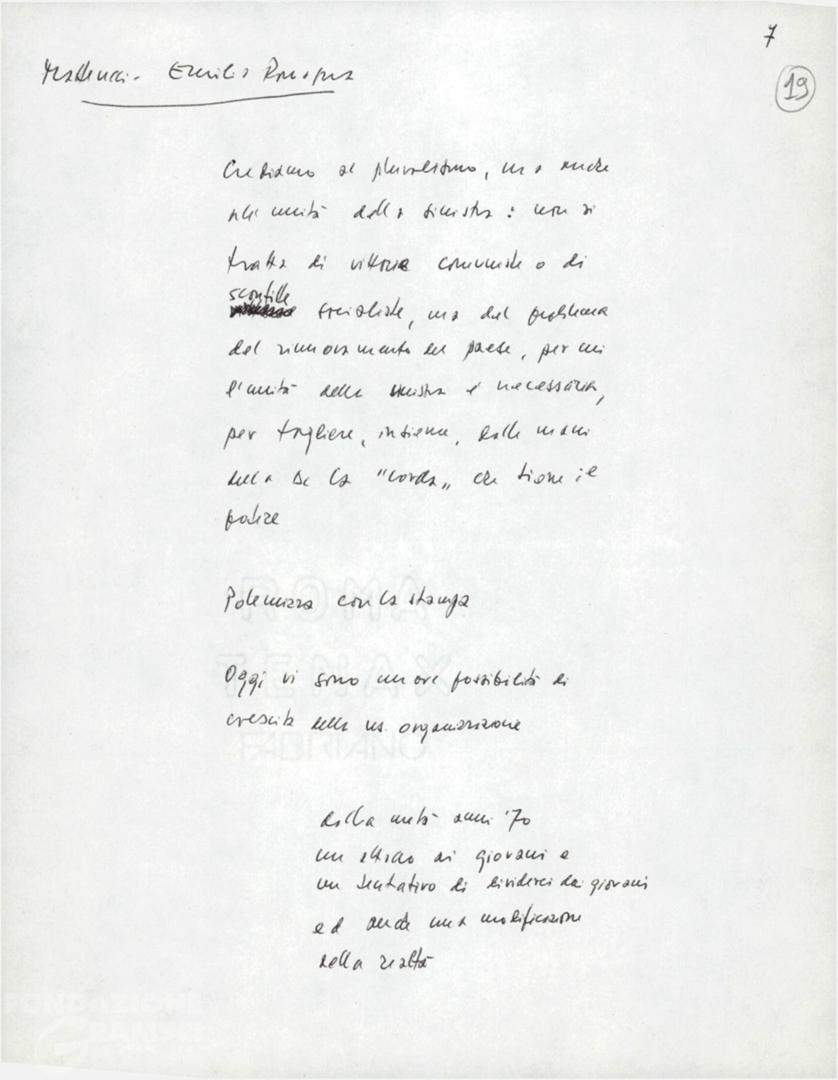 7
19
Matteucci - Emilia Romagna
Crediamo al pluralismo, ma anche
all'unità della sinistra: non si
tratta di vittorie comuniste o di
sconfitte
socialiste, ma del problema
del rinnovamento del paese, per cui
l'unità della sinistra è necessaria,
per togliere, insieme, dalle mani
della Dc la "corda" che tiene il
potere
Polemizza con la stampa
Oggi vi sono nuove possibilità di
crescita della ns. organizzazione
dalla metà anni '70
un attacco ai giovani e
un tentativo di dividerci dai giovani
ed anche una modificazione
della realtà
ROMA
TENAX
FABRIANO
FONDAZIONE
GRAMSCI